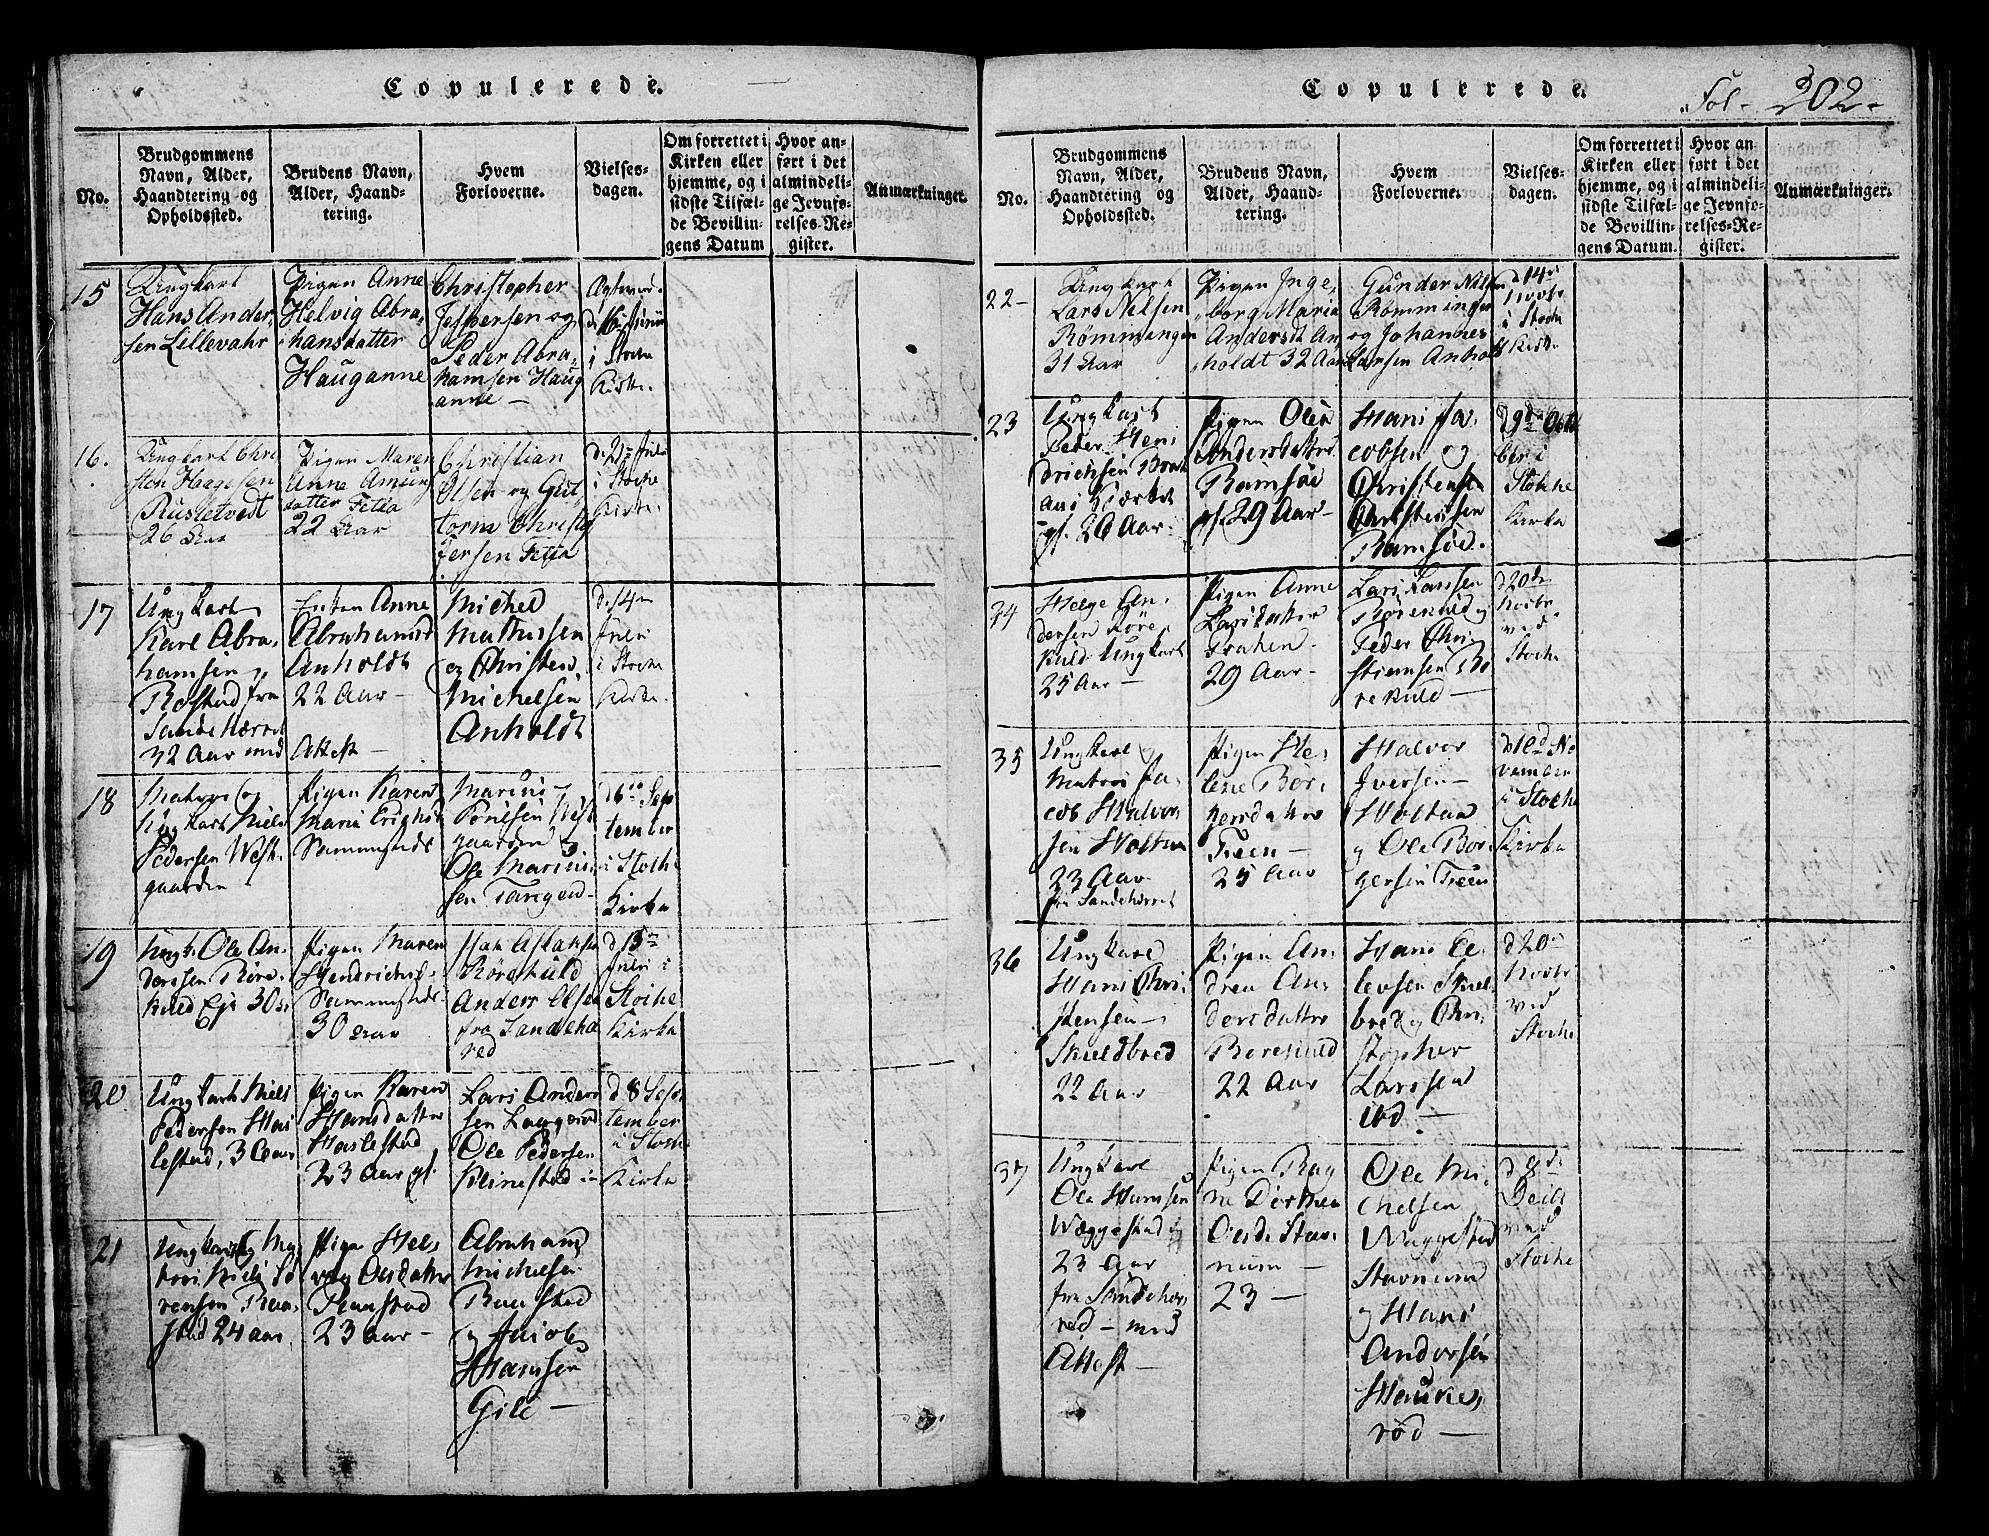 Copulerede.
No.
Brudgommens
Navn, Alder,
Haandtering og
Opholdssted.
Brudens Navn,
Alder, Haand-
tering.
Hvem
Forloverne.
Vielses-
dagen.
Om forrettet i
Kirken eller
hjemme, og i
sidste Tilfæl-
de Bevillin-
gens Datum
Hvor an-
ført i det
almindeli-
ge Jevnfø-
relses-Re-
gister.
Anmærkninger.
15
Ungkarl
Hans Ander,
sen Lillevahr
Pigen Anne
Helvig Abra,
hansdatter
Hauganne
Christopher
Jespersen og
Peder Abra,
hamsen Haug
anne —
i Stocke
Kirke.
16.
Ungkarl Chri
sten Haagesen
Rusletvedt
26 Aar
Pigen Maren
Anne Amun
datter Fetia
22 Aar
Christian
Olsen og Gut
torm Christo
fersen Fetia
i Stocke
Kirke.
17
Ungkarl
Karl Abra,
hamsen
Rostad fra
Sandeherred
32 Aar med
Enken Anne
Abrahamsd
Anholdt
22 Aar —
Attest —
Michel
Mathissen
og Christen
Michelsen
Anholdt
d. 14de
Juli
i Stocke
Kirke.
18
Matros og
Ungkarl Niels
Pedersen West,
gaarden
Pigen Karen
Marie Erichsd
Sammesteds
Marius
Tønesen West
gaarden
Ole Marius
sen Tangen
d 6te Sep
tember
i Stocke
Kirke
19
Ungk. Ole An,
dersen Røre,
kuld Eje 30
Pigen Maren
Hendrichsd
Sammesteds
30 Aar
Isak Aslaksen
Rørekuld
Anders Olsen
fra Sandehe
red
d 13de
Juli i
Stocke
Kirke
20
Ungkarl Niels
Pedersen Has
lestad, 30 aar
Pigen Karen
Hansdatter
Haslestad
23 Aar gl.
Lars Anders
sen
Ole Pedersen
Klinestad
d 8 Sep
tember
i Stocke
Kirke
21
Ungkarl og Ma,
tros. Niels Sø
rensen Raa,
stad 24 aar
Pigen Hel,
vig Olsdatter
Raastad
23 aar —
Abraham
Michelsen
Raastad
og Jacob
Hansen
Gile —
Copulerede.
Fol. 202.
No.
Brudgommens
Navn, Alder,
Haandtering og
Opholdssted.
Brudens Navn,
Alder, Haand-
tering.
Hvem
Forloverne.
Vielses-
dagen.
Om forrettet i
Kirken eller
hjemme, og i
sidste Tilfæl-
de Bevillin-
gens Datum.
Hvor an-
ført i det
almindeli-
ge Jevnfø-
relses-Re-
gister.
Anmærkninger.
22 —
Ungkarl
Lars Nilsen
Rømmingen
31 Aar
Pigen Inge,
borg Maria
Andersdt An
holdt 32 Aar
Gunder Nilsen
Rømmingen
og Johannes
Larsen Anholt
d 14de
Novbr
i Stocke
Kirke
23
Ungkarl
Peder Hen
drichsen
gl. 26 Aar.
Pigen Olea
Andersdatter
Ramsøe
gl. 29 Aar —
Hans Ja,
cobsen og
Christen
Christensen
Ramsøe.
d 9de Octo
ber i
Stokke
Kirke
34
Helge An,
dersen Røre,
kuld Ungkarl
25 Aar —
Pigen Anne
Larsdatter
Trahen
29 Aar —
Lars Larsen
Rørekuld og
Peder Chri,
stiansen Rø
rekuld —
d 20de
Novbr
ved
Stocke
35
Ungkarl og
Matros Ja,
cob Halvor
sen Holtan
23 Aar
fra Sandeherret
Pigen He,
lene Bør,
gersdatter
Treen —
25 Aar
Halvor
Iversen —
Holtan
og Ole Bør,
gersen Treen
No
vember
i Stocke
Kirke
36
Ungkarl
Hans Chri,
stensen —
Skuldbred
22 Aar
Pigen An,
drea An,
dersdatter
Rørekuld
22 Aar
Hans El,
levsen Skul
bred og Chri
stopher
Larssen
ibd —
d 20de
Novbr
ved
Stocke
37
Ungkarl
Ole Hansen
Wæggestad
23 Aar
fra Sandeher,
red — med
Attest —
Pigen Rag
ne Dorthea
Olsd. Stav,
num —
23 —
Ole Mi,
chelsen
Wæggestad
Stavnum
og Hans
Andersen
Hauke,
rød —
d 8de
ved
Stocke